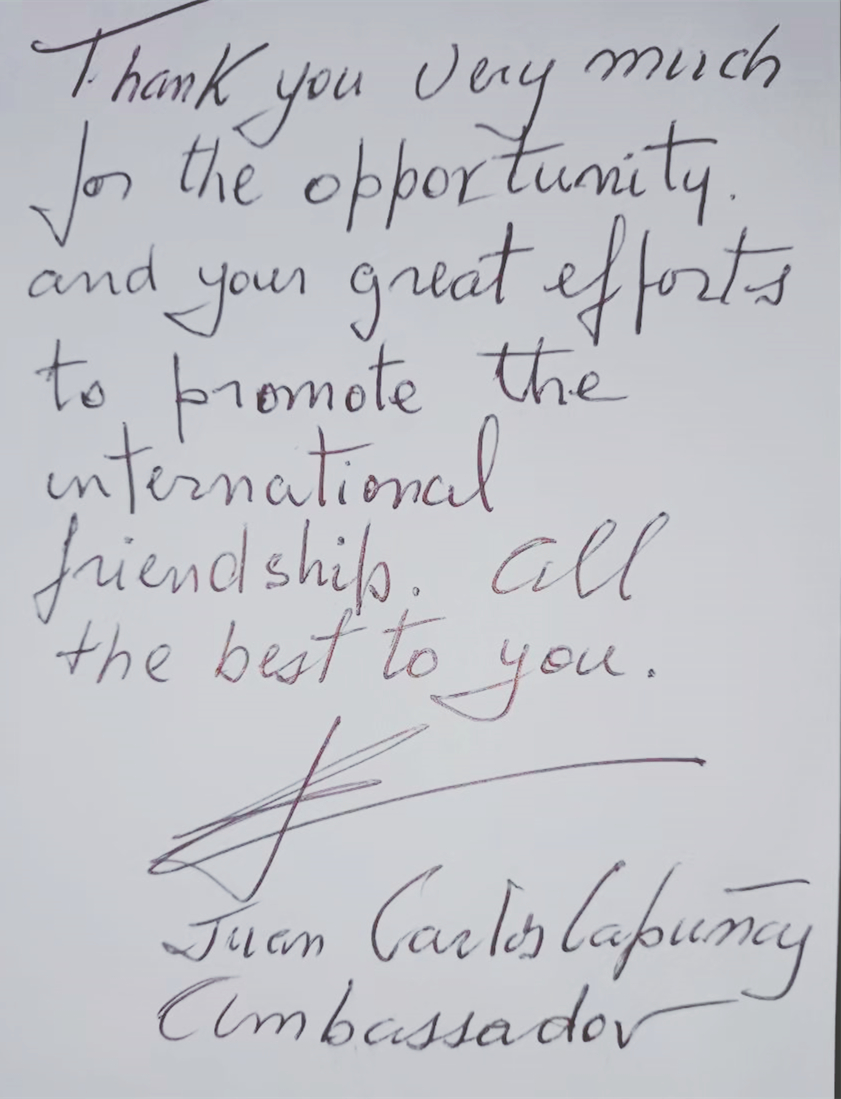 Thank you very much
for the opportunity.
and your great efforts
to promote the
international
friendship. All
the best to you.
Juan Carlos Capuñay
Ambassador